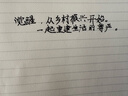 觉醒，从乡村振兴开始。
一起重建生活的尊严。